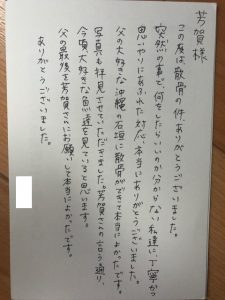 芳賀様
この度は、散骨の件、ありがとうございました。
突然の事で、何をしたらいいのか分からない私達に丁寧かつ
思いやりにあふれた対応、本当にありがとうございました。
父の大好きな沖縄の石垣に散骨ができて本当によかったです。
写真も拝見させていただきました。芳賀さんの言う通り、
今頃、大好きな魚達を見ていると思います。
父の最後を芳賀さんにお願いして本当によかったです。
ありがとうございました。